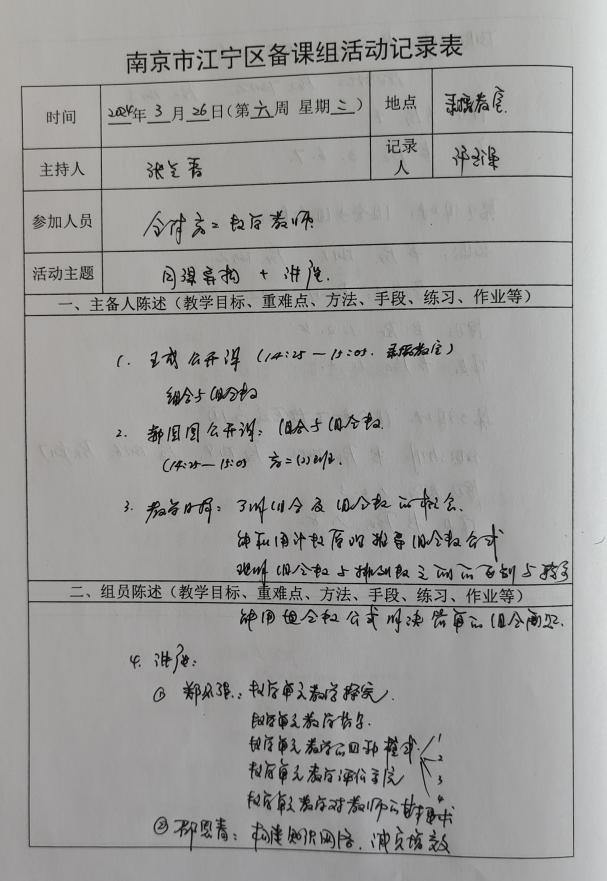 南京市江宁区备课组活动记录表
时间 2024年 3 月 26 日(第 六 周 星期 二) 地点 录播教室
主持人 记录人
参加人员 全体高二数学教师
活动主题 同课异构 + 讲座.
一、主备人陈述(教学目标、重难点、方法、手段、练习、作业等)
1. 公开课 (14:25 — 15:05. 录播教室)
组合与组合数
2. 郭圆圆公开课: 组合与组合数.
(14:25 — 15:05 高二(2)班).
3. 教学目标: 了解组合及组合数的概念.
能利用计数原理推导组合数公式
理解组合数与排列数之间的区别与联系
二、组员陈述(教学目标、重难点、方法、手段、练习、作业等)
能用组合数公式解决简单的组合问题.
4. 讲座:
① 数学单元教学探究.
数学单元教学
数学单元教学的四种模式. 1 2 3 4
数学单元教学评价
数学单元教学对教师的基本要求
② 构建知识网络, 减负增效